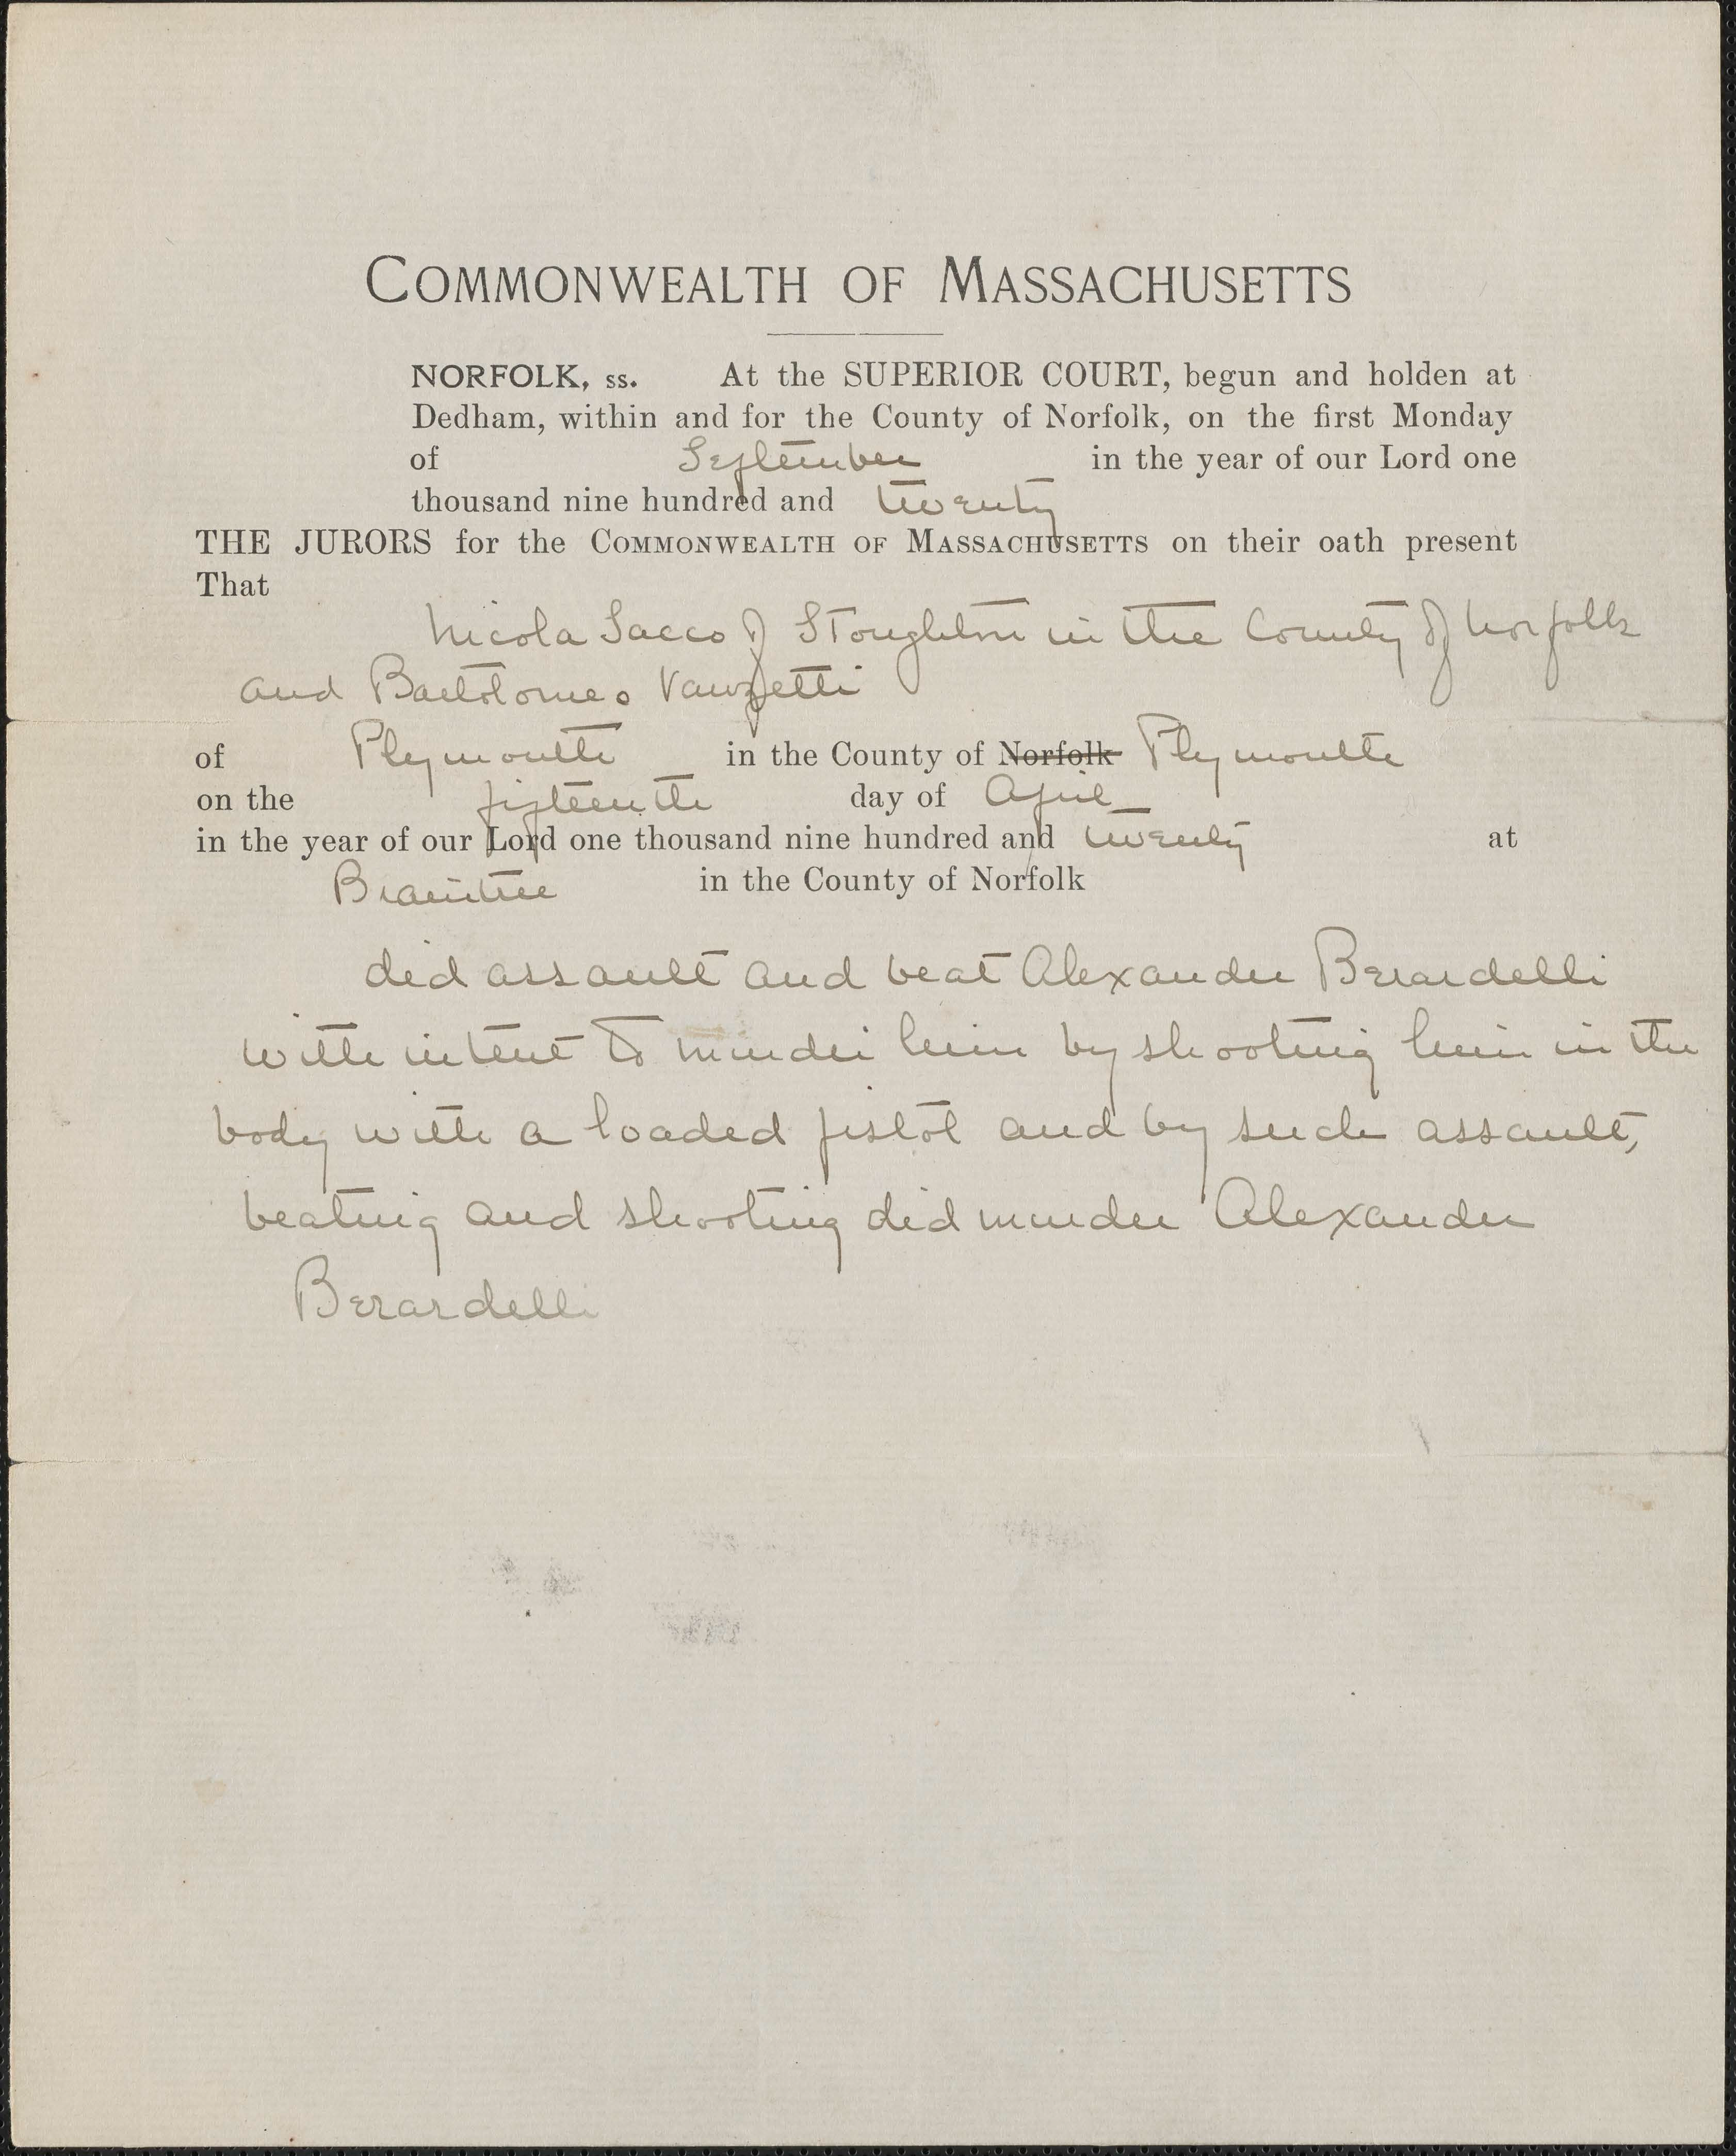 COMMONWEALTH OF MASSACHUSETTS
NORFOLK, ss. At the SUPERIOR COURT, begun and holden at
Dedham, within and for the County of Norfolk, on the first Monday
of September in the year of our Lord one
thousand nine hundred and twenty
THE JURORS for the COMMONWEALTH OF MASSACHUSETTS on their oath present
That
Nicola Sacco of Stoughton in the County of Norfolk
and Bartolomeo Vanzetti
of Plymouth in the County of Norfolk Plymouth
on the fifteenth day of April
in the year of our Lord one thousand nine hundred and twenty at
Braintree in the County of Norfolk
did assault and beat Alexander Berardelli
with intent to murder him by shooting him in the
body with a loaded pistol and by such assault,
beating and shooting did murder Alexander
Berardelli